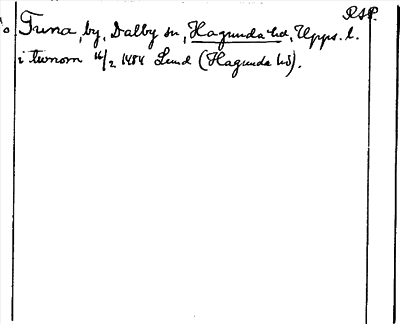 RSP.
Tuna, by, Dalby sn, Hagunda hd, Upps. l.
i twnom 16/2 1484 Lund (Hagunda hd).